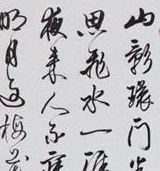 山影環門
思飛水一涯
夜来人不
明月過梅花